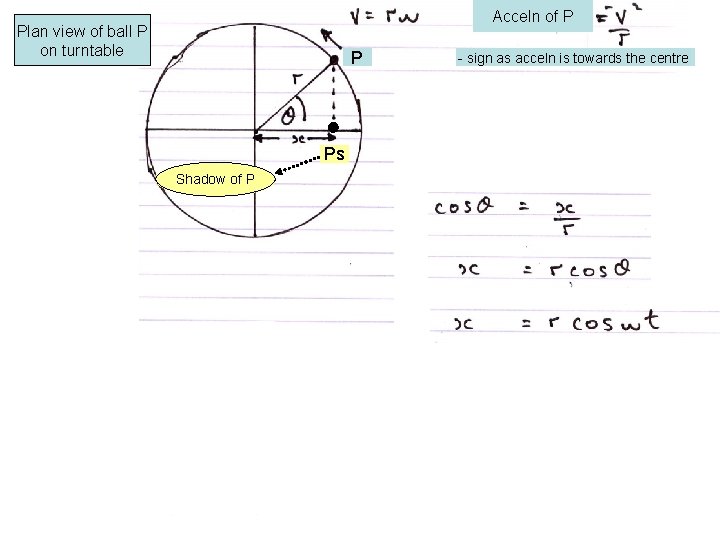 Plan view of ball P
on turntable
v = rω
Acceln of P = -v²/r
P
- sign as acceln is towards the centre
r
θ
x
Ps
Shadow of P
cosθ = x/r
x = r cosθ
x = r cosωt